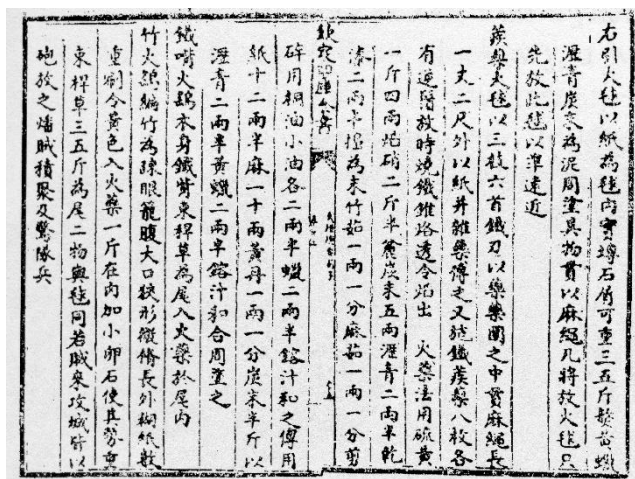 右引火毬以紙為毬內實塼石屑可重三五斤熬黃蠟
瀝青炭末為泥周塗其物貫以麻繩凡將放火毬只
先放此毬以準遠近
蒺藜火毬以三枝六首鐵刃以藥藥團之中貫麻繩長
一丈二尺外以紙并雜藥傅之又施鐵蒺藜八枚各
有逆鬚放時燒鐵錐烙透令焰出 火藥法用硫黃
一斤四兩焰硝二斤半麄炭末五兩瀝青二兩半乾
漆二兩半搗為末竹茹一兩一分麻茹一兩一分剪
欽定四庫全書
碎用桐油小油各二兩半蠟二兩半鎔汁和之傅用
紙十二兩半麻一十兩黃丹一兩一分炭末半斤以
瀝青二兩半黃蠟二兩半鎔汁和合周塗之
鐵嘴火鷂木身鐵嘴束稈草為尾入火藥於尾內
竹火鷂編竹為疎眼籠腹大口狹形微脩長外糊紙數
重刷令黃色入火藥一斤在內加小卵石使其勢重
束稈草三五斤為尾二物與毬同若賊來攻城皆以
砲放之燔賊積聚及驚隊兵